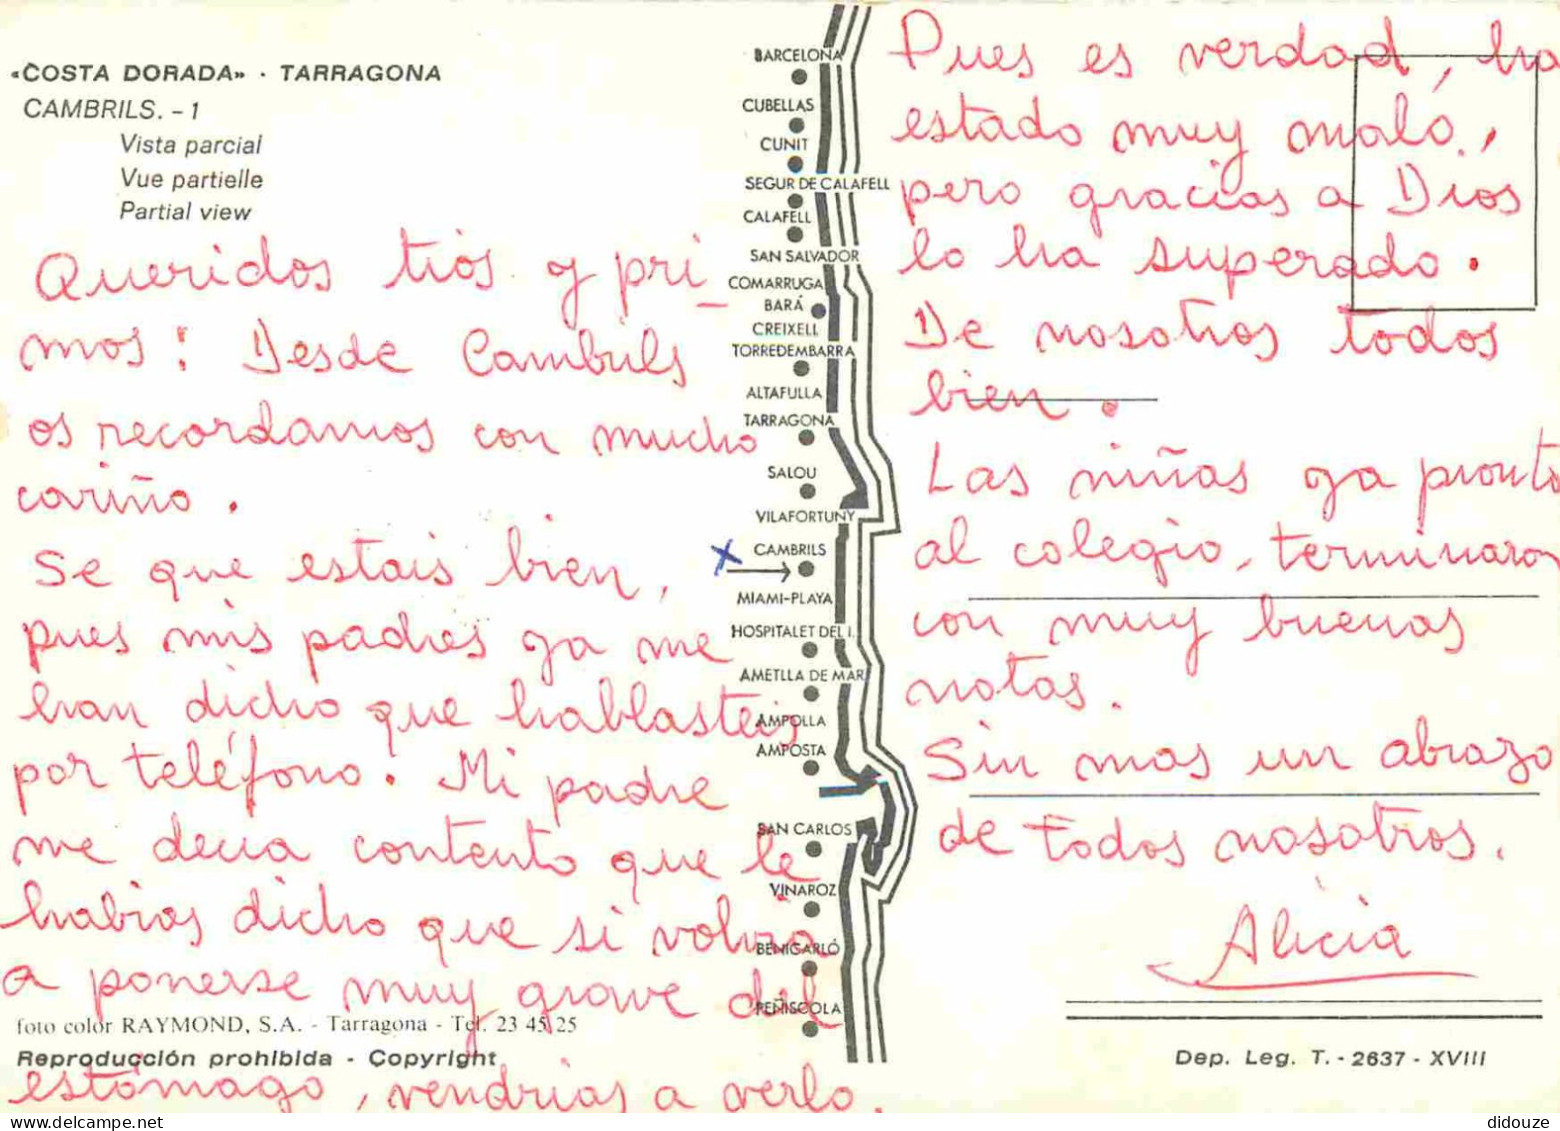 «COSTA DORADA» · TARRAGONA
CAMBRILS. - 1
Vista parcial
Vue partielle
Partial view
Queridos tios y pri-
mos: Desde Cambrils
os recordamos con mucho
cariño.
Se que estais bien,
pues mis padres ya me
han dicho que hablasteis
por teléfono. Mi padre
me decia contento que le
habias dicho que si volvia
a ponerse muy grave del
estómago, vendrias a verlo.
foto color RAYMOND, S.A. - Tarragona - Tel. 23 45 25
Reproducción prohibida - Copyright
BARCELONA
CUBELLAS
CUNIT
SEGUR DE CALAFELL
CALAFELL
SAN SALVADOR
COMARRUGA
BARÁ
CREIXELL
TORREDEMBARRA
ALTAFULLA
TARRAGONA
SALOU
VILAFORTUNY
x CAMBRILS
MIAMI-PLAYA
HOSPITALET DEL I.
AMETLLA DE MAR
AMPOLLA
AMPOSTA
SAN CARLOS
VINAROZ
BENICARLÓ
PEÑISCOLA
Pues es verdad, ha
estado muy malo,
pero gracias a Dios
lo ha superado.
De nosotros todos
bien.
Las niñas ya pronto
al colegio, terminaron
con muy buenas
notas.
Sin mas un abrazo
de todos nosotros.
Alicia
Dep. Leg. T. - 2637 - XVIII
didouze